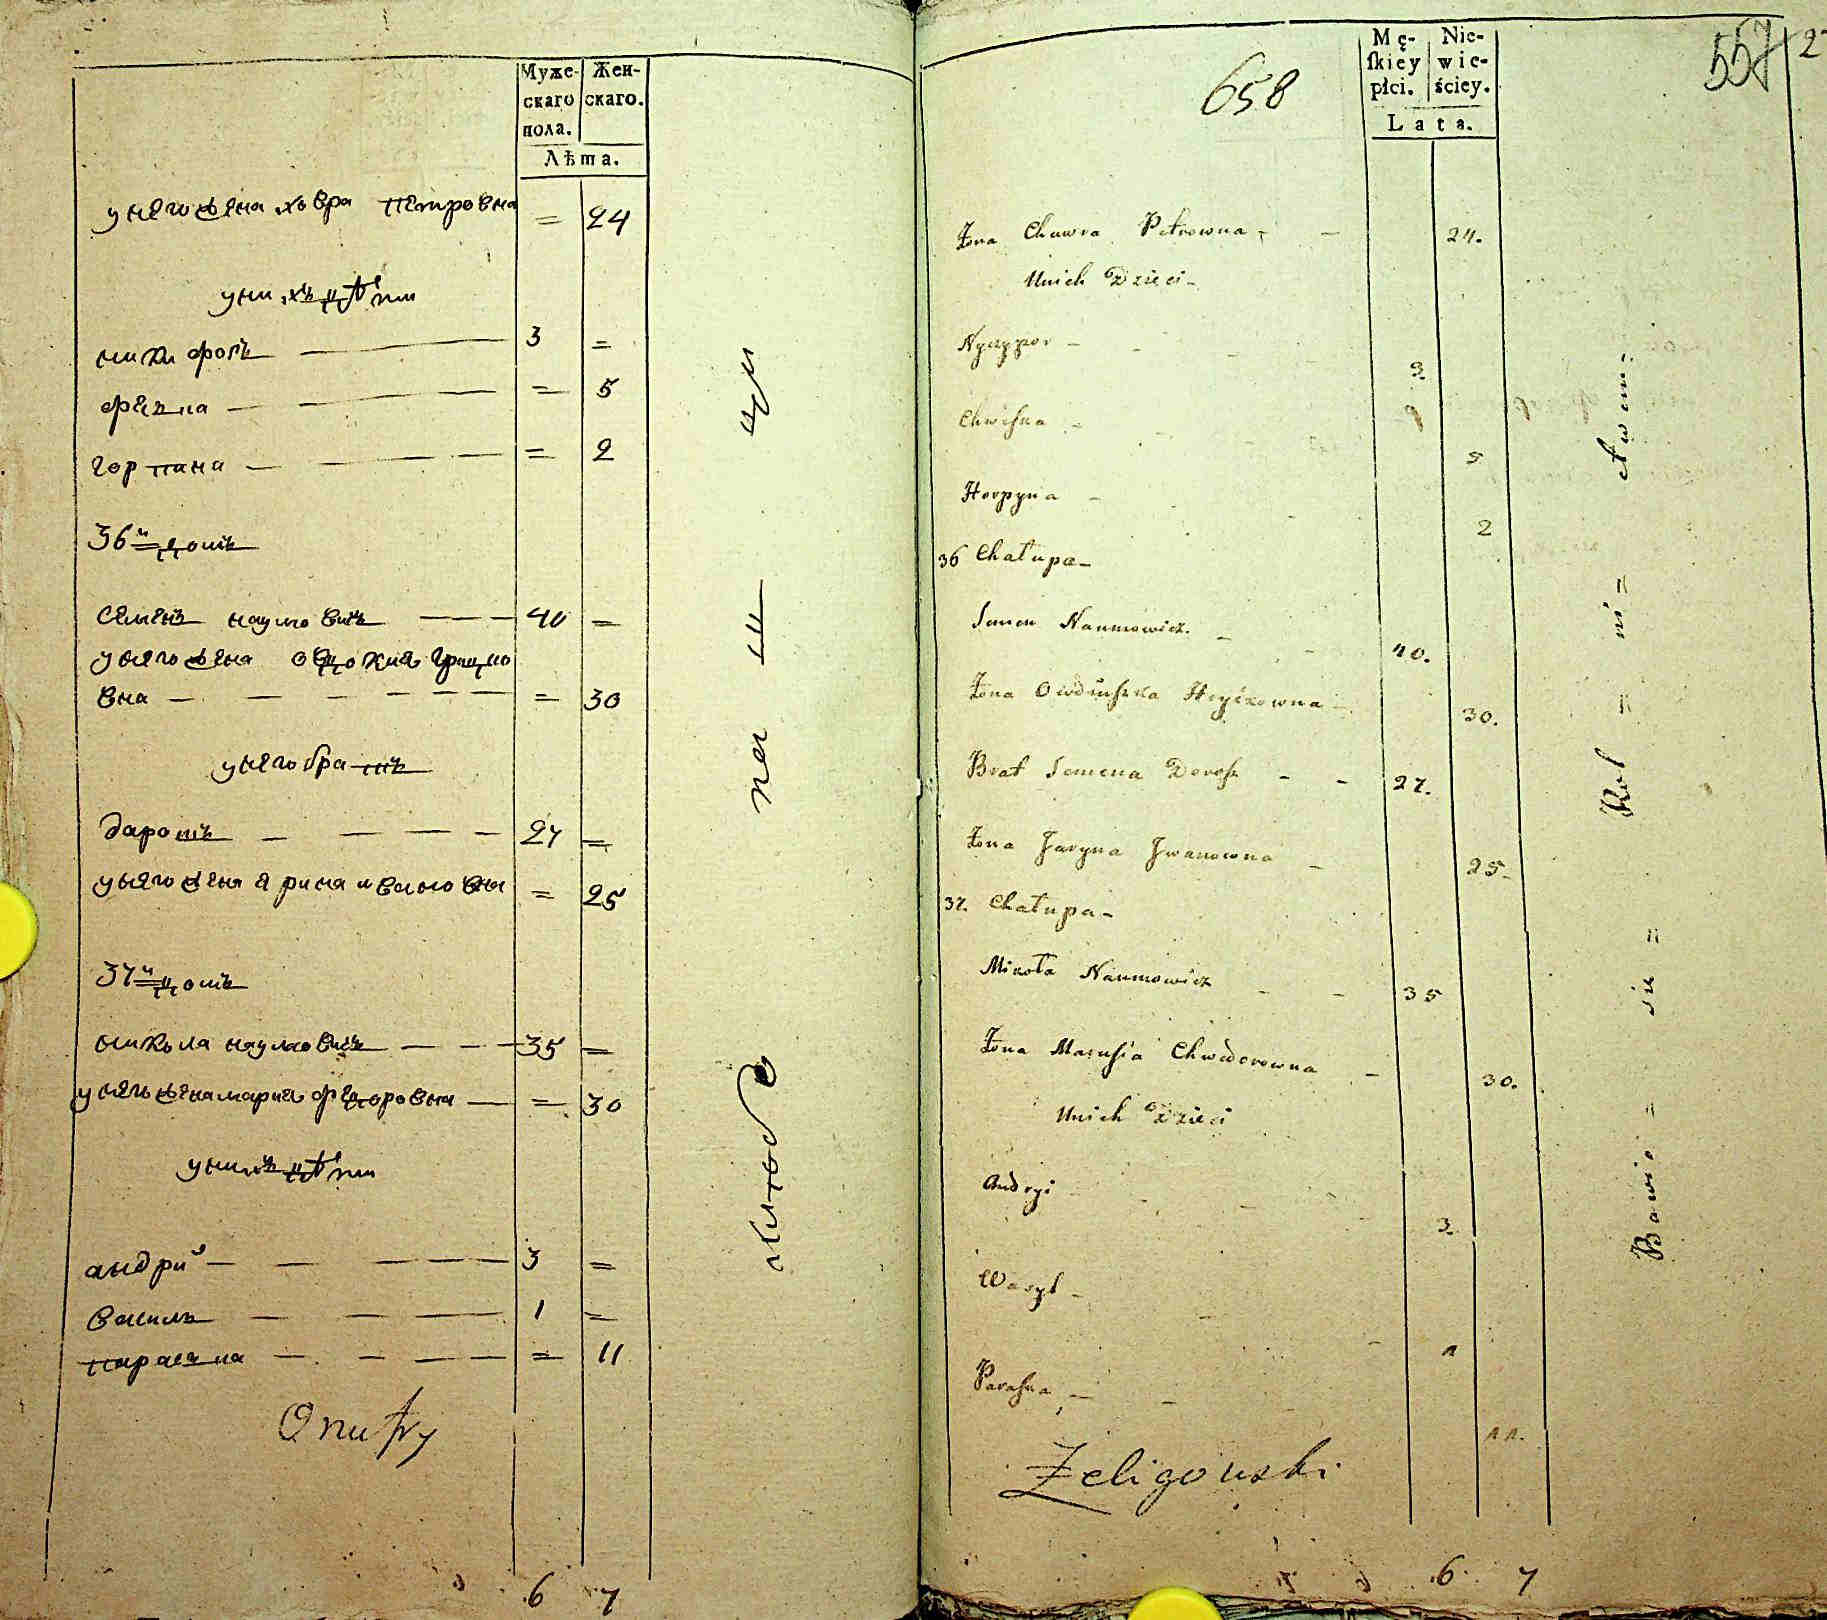 Муже-
скаго
пола.
Жен-
скаго.
Лѣта.
у него жена ховра петровна = 24
у нихъ дѣти
никифоръ 3 =
феъна = 5
горпина = 2
36й домъ
семенъ наумовичъ 40 =
у него жена овдокия грицко
вна = 30
у него братъ
дарошъ 27 =
у него жена ярина ивановна = 25
37й домъ
никола наумовичъ 35 =
у него жена мария федоровна = 30
у нихъ дѣти
андрий 3 =
василь 1 =
параска = 11
Onufry
6 7
658
557
2
Mę-
skiey
płci.
Nie-
wie-
ściey.
Lata.
Żona Chawra Petrowna - - 24.
Unich Dzieci -
Nyczypor - 3.
Chweska - 5
Horpyna - 2
36 Chałupa -
Semen Naumowicz - 40.
Żona Owdiuszka Hryćkowna - 30.
Brat Semena Dorosz - - 27.
Żona Jaryna Jwanowna - 25 -
37. Chałupa -
Mikoła Naumowicz - - 35
Żona Marusia Chwedorowna - 30.
Unich Dzieci
Andryi 3.
Wasyl - 1
Paraska - 11.
Żeligowski
6 7